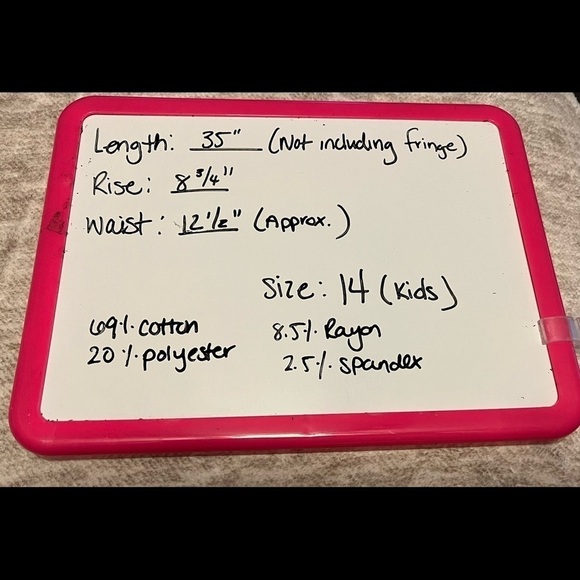 Length: 35" (Not including fringe)
Rise: 8 3/4"
Waist: 12 1/2" (Approx.)
Size: 14 (Kids)
69% cotton 8.5% Rayon
20% polyester 2.5% Spandex